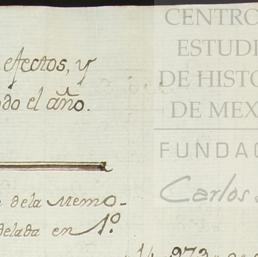 CENTRO
ESTUDI
DE HISTO
DE MEX
FUNDAC
Carlos
efectos, y
do el año.
de la Memo-
delada en 1º
14.973